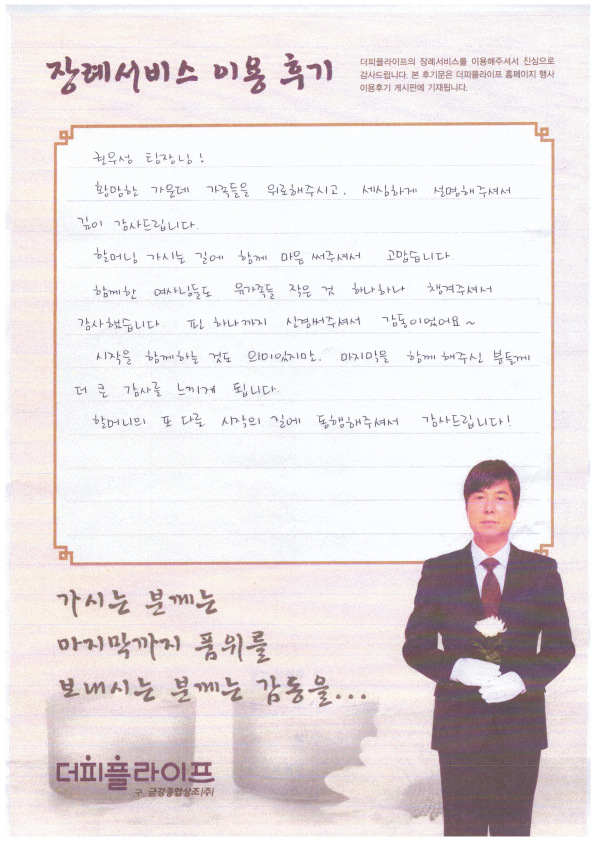 장례서비스 이용 후기
더피플라이프의 장례서비스를 이용해주셔서 진심으로
감사드립니다. 본 후기문은 더피플라이프 홈페이지 행사
이용후기 게시판에 기재됩니다.
현우성 팀장님!
황망한 가운데 가족들을 위로해주시고, 세심하게 설명해주셔서
깊이 감사드립니다.
할머님 가시는 길에 함께 마음 써주셔서 고맙습니다.
함께한 여사님들도 유가족들 작은 것 하나하나 챙겨주셔서
감사했습니다. 핀 하나까지 신경써주셔서 감동이었어요~
시작을 함께하는 것도 의미있지만, 마지막을 함께 해주신 분들께
더 큰 감사를 느끼게 됩니다.
할머니의 또 다른 시작의 길에 동행해주셔서 감사드립니다!
가시는 분께는
마지막까지 품위를
보내시는 분께는 감동을...
더피플라이프
구. 금강종합상조(주)